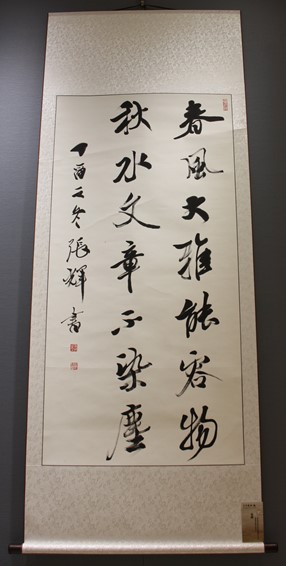 春風大雅能容物
秋水文章不染塵
丁酉之冬張輝書